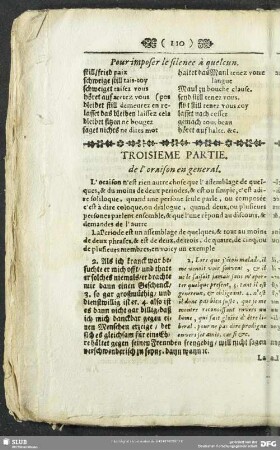 ( 110 )
Pour imposer le silence à quelcun.
still / fried paix
schweige still tais-toy
schweiget taisez vous
höret auf arrêtez vous
bleibet still demeurez en re-
lasset das bleiben laissez cela
bleibet sitzen ne bougez
saget nichts ne dites mot
haltet das Maul tenez vous
langue
Maul zu bouche close.
send still tenez vous.
sitzt still tenez vous coy
lasset nach cesser
gemach tout beau
höret auf halte. &c.
TROISIEME PARTIE.
de l'oraison en general.
L'oraison n'est rien autre chose que l'assemblage de quel-
ques, & du moins de deux periodes, & est ou simple, c'est à di-
re soliloque, quand une personne seule parle, ou composée
c'est à dire coloque, ou dialogue, quand deux, ou plusieurs
personnes parlent ensemble, & que l'une répond au discours, &
demandes de l'autre
La Periode est un assemblage de quelques, & tout au moins
de deux phrases, & est de deux, de trois, de quatre, de cinq, ou
de plusieurs membres, en voicy un exemple
2. Als ich kranck war be-
suchte er mich oft / und that
er solches niemals er brachte
mir dann einen Geschenck /
3. so gar großmüthig / und
dienstwillig ist er. 4. also ist
es dann nicht gar billig / daß
ich mich danckbar gegen ei-
nen Menschen erzeige / der
sich es gleichsam für eine Eh-
re hältet gegen seinen Freunden
verschwenderisch zu seyn; dann wann ic.
2. Lors que j'étois malade, il
me venoit voir souvent, & il
ne le faisoit jamais sans m'appor-
ter quelque present, 3. tant il est
genereux, & obligeant. 4. n'est-
il donc pas bien juste, que je me
montre reconnoissant envers un
homme, qui fait gloire d'être li-
beral, pour ne pas dire prodigue
envers ses amis, car si &c.
freygebig / will nicht sagen